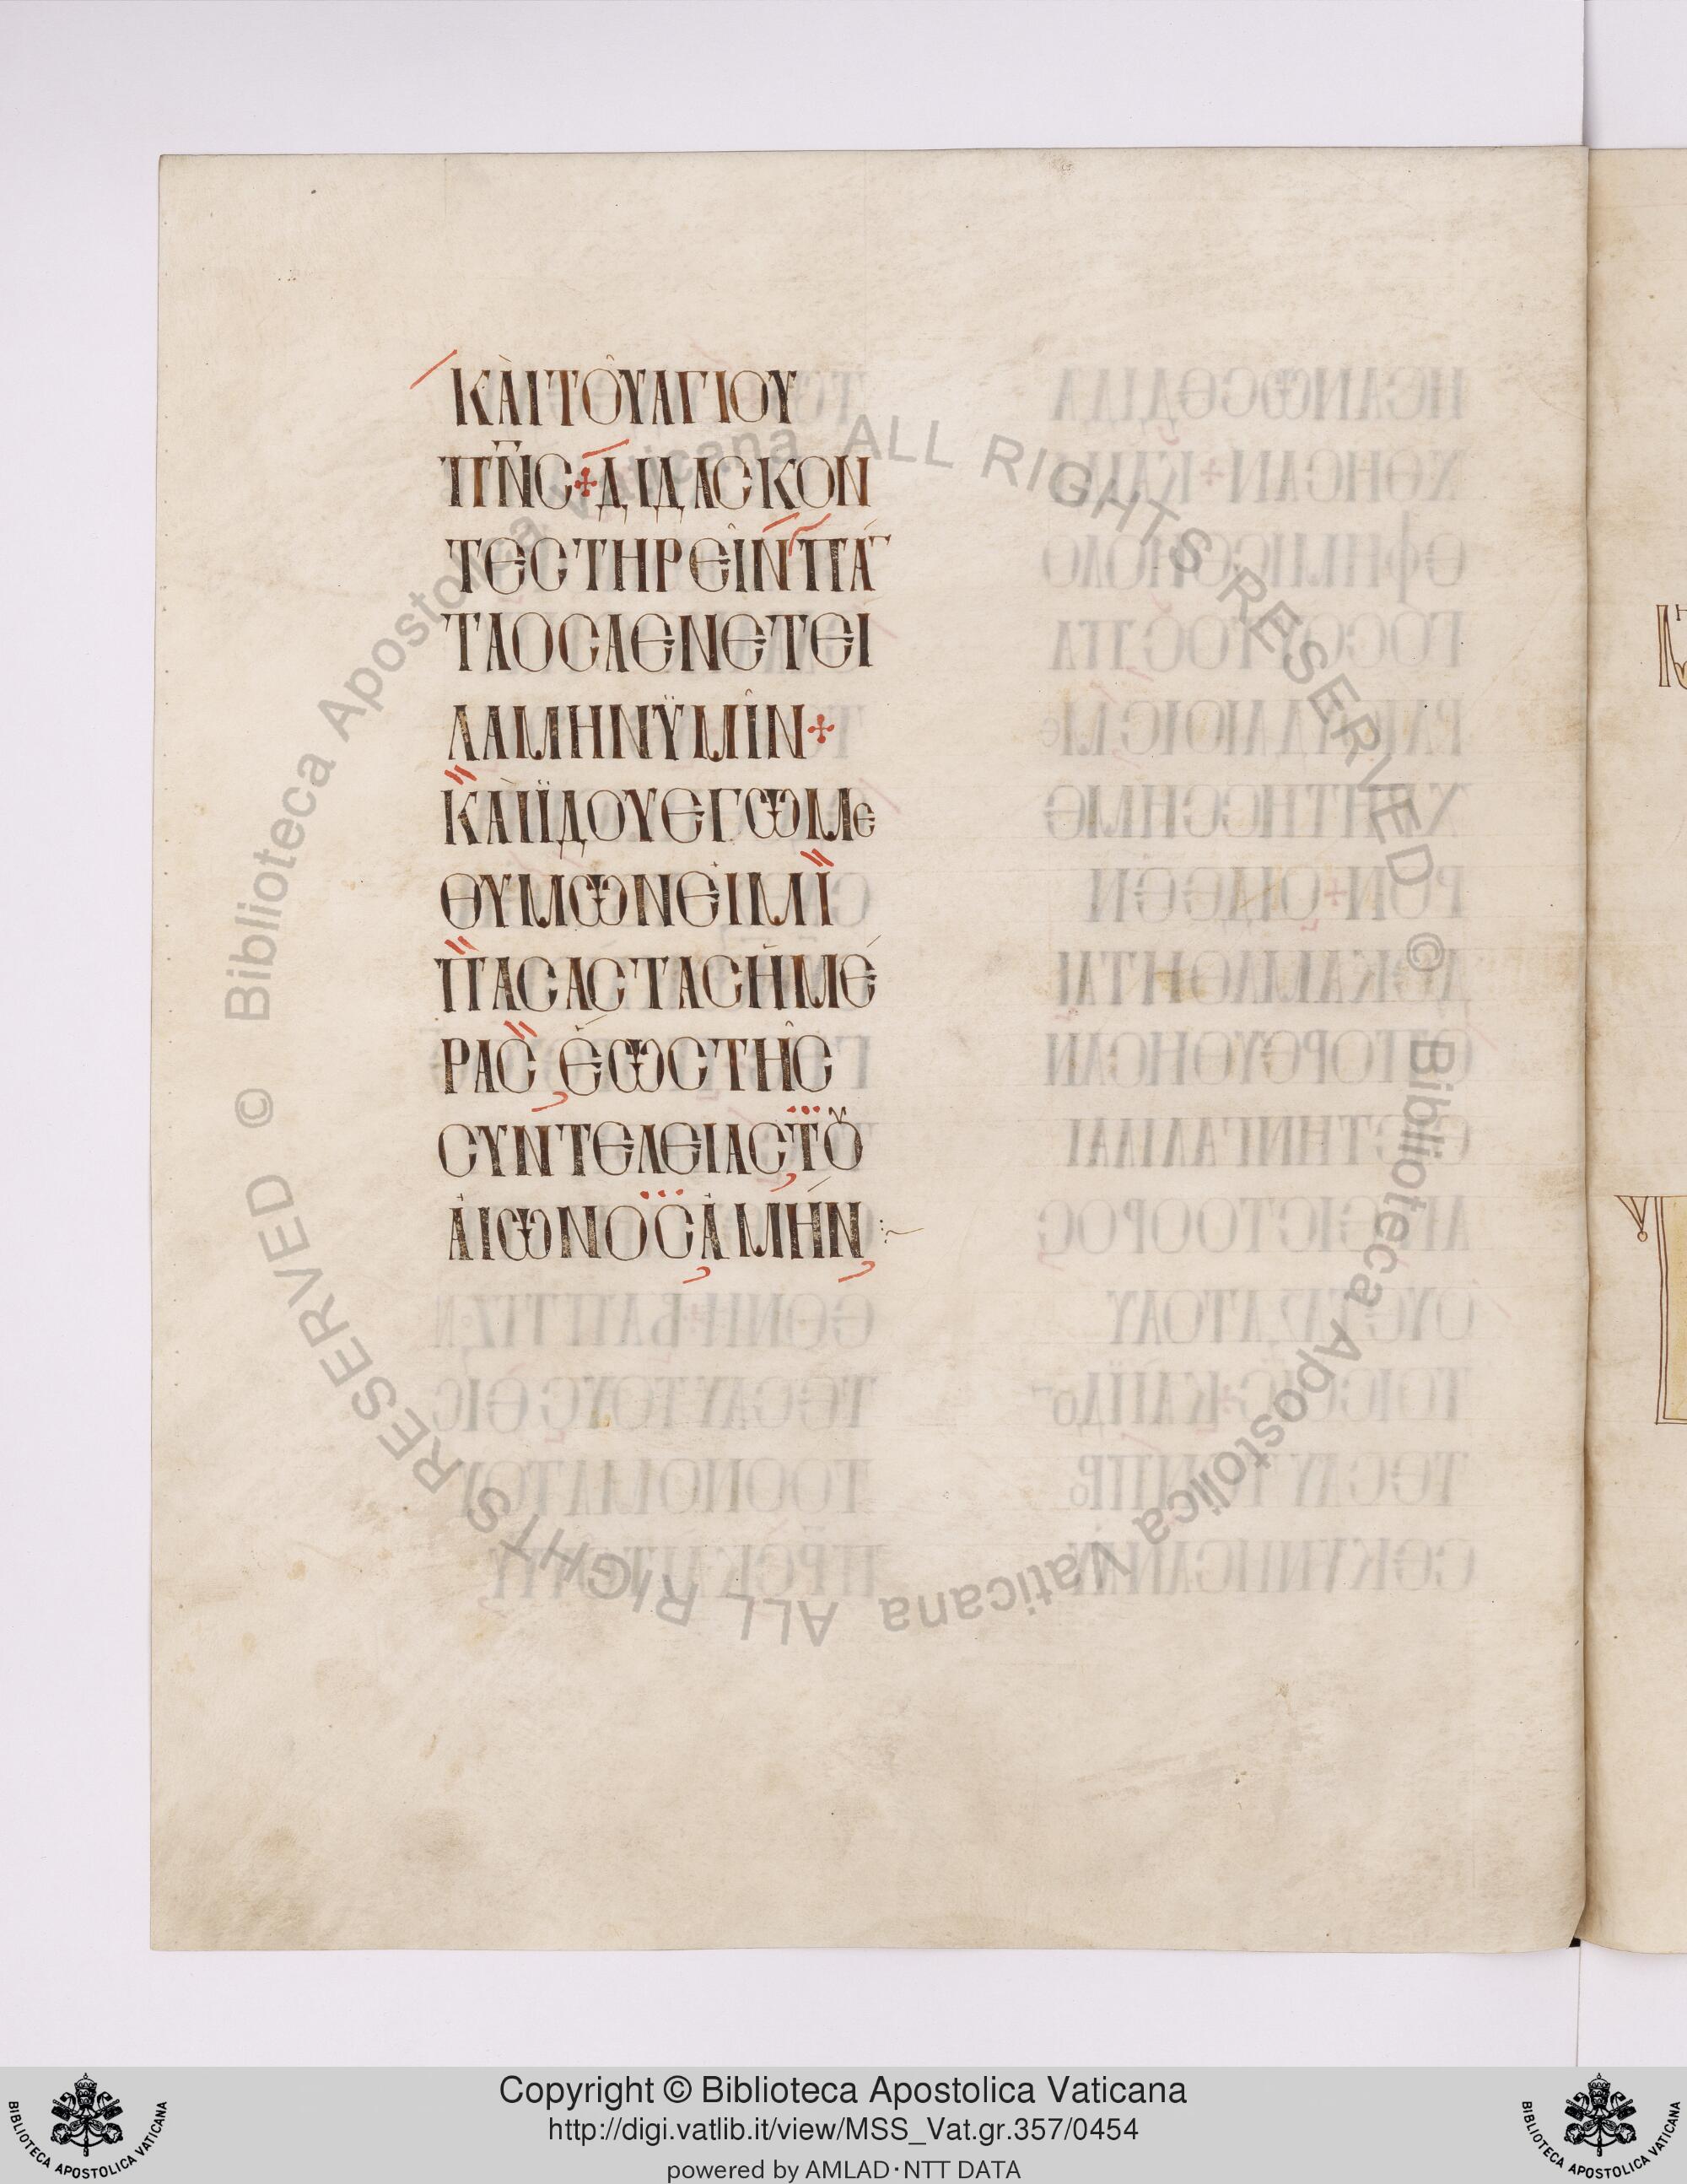 ΚΑὶΤΟῦΑΓΙΟΥ
Π̅Ν̅Ϲ̅ ✢ ΔΙΔΑϹΚΟΝ
ΤΕϹΤΗΡΕῖΝΠΆ
ΤΑΟϹΑΕΝΕΤΕΙ
ΛΑΜΗΝΫΜῖΝ ✢
ΚΑὶΪΔΟΥΕΓΩΜΕ
ΘΥΜΩΝΕΙΜΙ
ΠΑϹΑϹΤΑϹἩΜΈ
ΡΑϹ ἝΩϹΤΗ͂Ϲ
ϹΥΝΤΕΛΕΙΑϹΤȢ͂
ἈΙΩΝΟϹἈΜΉΝ
© Biblioteca Apostolica Vaticana ALL RIGHTS RESERVED
© Biblioteca Apostolica Vaticana ALL RIGHTS RESERVED
Copyright © Biblioteca Apostolica Vaticana
http://digi.vatlib.it/view/MSS_Vat.gr.357/0454
powered by AMLAD·NTT DATA
BIBLIOTECA APOSTOLICA VATICANA
BIBLIOTECA APOSTOLICA VATICANA